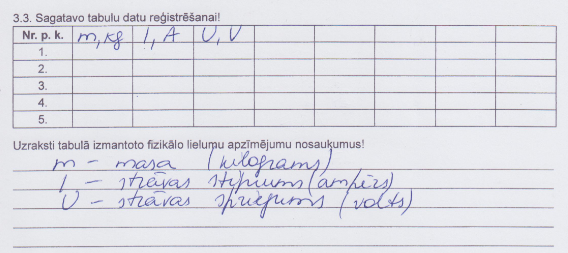 3.3. Sagatavo tabulu datu reģistrēšanai!
Nr. p. k. m, kg I, A U, V
1.
2.
3.
4.
5.
Uzraksti tabulā izmantoto fizikālo lielumu apzīmējumu nosaukumus!
m – masa (kilograms)
I – strāvas stiprums (ampērs)
U – strāvas spriegums (volts)